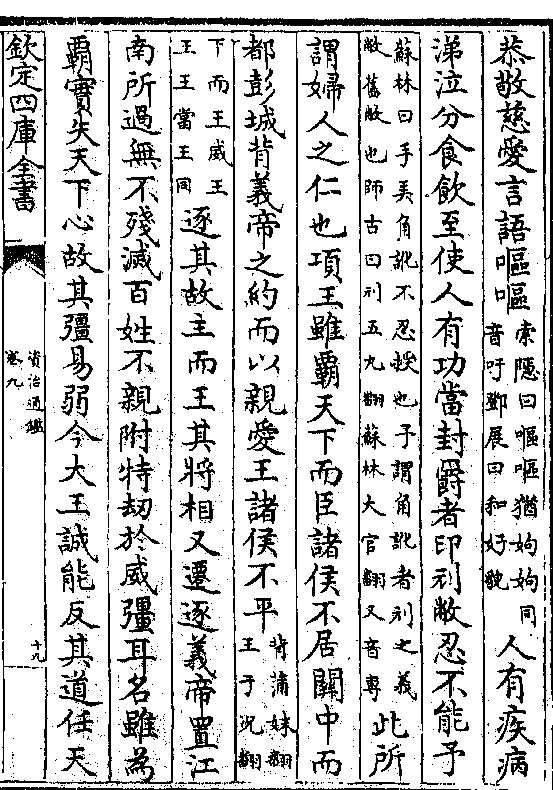 恭敬慈愛言語嘔嘔索隱曰嘔嘔猶姁姁同音吁鄧展曰和好貌人有疾病
涕泣分食飲至使人有功當封爵者印刓敝忍不能予
蘇林曰手弄角訛不忍授也予謂角訛者刓之義敝舊敝也師古曰刓五丸翻蘇林大官翻又音專此所
謂婦人之仁也項王雖霸天下而臣諸侯不居關中而
都彭城背義帝之約而以親愛王諸侯不平背蒲妹翻王于況翻
下而王威王王王當王同逐其故主而王其將相又遷逐義帝置江
南所過無不殘滅百姓不親附特劫於威彊耳名雖為
霸實失天下心故其彊易弱今大王誠能反其道任天
欽定四庫全書
資治通鑑
卷九
十九